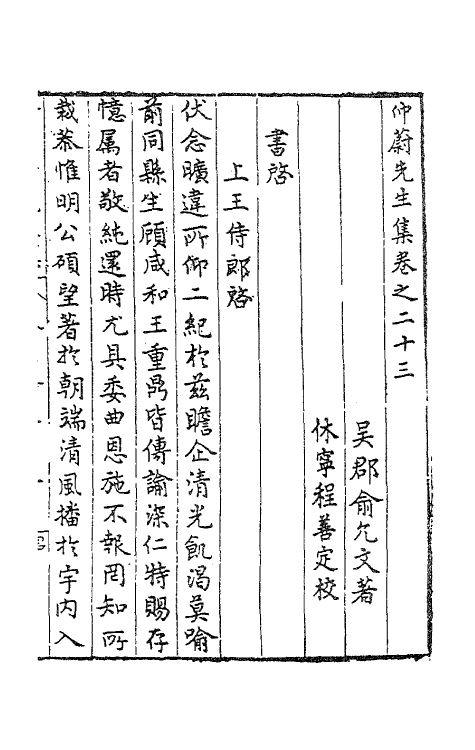 仲蔚先生集卷之二十三
吴郡俞允文著
休寧程善定校
書啓
上王侍郎啓
伏念曠違所仰二紀於兹瞻企清光飢渴莫喻
前同縣生顧咸和王重鼎皆傳諭深仁特賜存
憶属者敬純還時尤具委曲恩施不報罔知所
裁恭惟明公碩望著於朝端清風播於宇内入